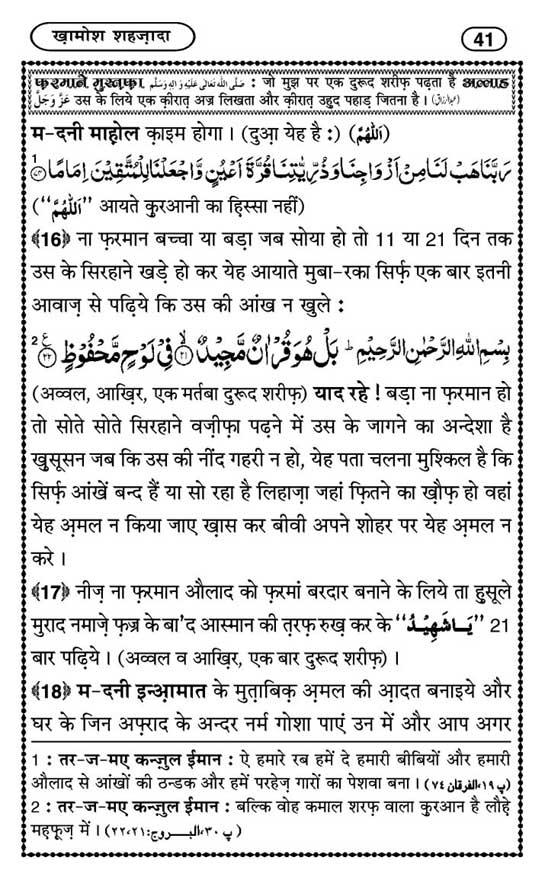 ख़ामोश शहज़ादा
41
फ़रमाने मुस्तफ़ा صَلَّى اللّٰهُ تَعَالٰى عَلَيْهِ وَاٰلِهٖ وَسَلَّم : जो मुझ पर एक दुरूद शरीफ़ पढ़ता है अल्लाह
عَزَّ وَجَلَّ उस के लिये एक क़ीरात अज्र लिखता और क़ीरात उहुद पहाड़ जितना है।
म-दनी माह़ोल क़ाइम होगा। (दुआ़ येह है :) (اَللّٰهُمَّ)
رَبَّنَا هَبْ لَنَا مِنْ اَزْوَاجِنَا وَذُرِّيّٰتِنَا قُرَّةَ اَعْيُنٍ وَّاجْعَلْنَا لِلْمُتَّقِيْنَ اِمَامًا ﴿۷۴﴾ 1
(“اَللّٰهُمَّ” आयते क़ुरआनी का हिस्सा नहीं)
﴾16﴿ ना फ़रमान बच्चा या बड़ा जब सोया हो तो 11 या 21 दिन तक
उस के सिरहाने खड़े हो कर येह आयाते मुबा-रका सिर्फ़ एक बार इतनी
आवाज़ से पढ़िये कि उस की आंख न खुले :
بِسْمِ اللّٰهِ الرَّحْمٰنِ الرَّحِيْمِ ؕ بَلْ هُوَ قُرْاٰنٌ مَّجِيْدٌ ﴿۲۱﴾ فِيْ لَوْحٍ مَّحْفُوْظٍ ﴿۲۲﴾ 2
(अव्वल, आख़िर, एक मर्तबा दुरूद शरीफ़) याद रहे ! बड़ा ना फ़रमान हो
तो सोते सोते सिरहाने वज़ीफ़ा पढ़ने में उस के जागने का अन्देशा है
ख़ुसूसन जब कि उस की नींद गहरी न हो, येह पता चलना मुश्किल है कि
सिर्फ़ आंखें बन्द हैं या सो रहा है लिहाज़ा जहां फ़ितने का ख़ौफ़ हो वहां
येह अ़मल न किया जाए ख़ास कर बीवी अपने शोहर पर येह अ़मल न
करे।
﴾17﴿ नीज़ ना फ़रमान औलाद को फ़रमां बरदार बनाने के लिये ता हुसूले
मुराद नमाज़े फ़ज्र के बा'द आस्मान की त़रफ़ रुख़ कर के “يَا شَهِيْدُ” 21
बार पढ़िये। (अव्वल व आख़िर, एक बार दुरूद शरीफ़)।
﴾18﴿ म-दनी इन्आ़मात के मुत़ाबिक़ अ़मल की आ़दत बनाइये और
घर के जिन अफ़्राद के अन्दर नर्म गोशा पाएं उन में और आप अगर
1 : तर-ज-मए कन्ज़ुल ईमान : ऐ हमारे रब हमें दे हमारी बीबियों और हमारी
औलाद से आंखों की ठन्डक और हमें परहेज़ गारों का पेशवा बना। (پ١٩،الفرقان ٧٤)
2 : तर-ज-मए कन्ज़ुल ईमान : बल्कि वोह कमाल शरफ़ वाला क़ुरआन है लौह़े
मह़फ़ूज़ में। (پ٣٠،البروج:٢٢،٢١)